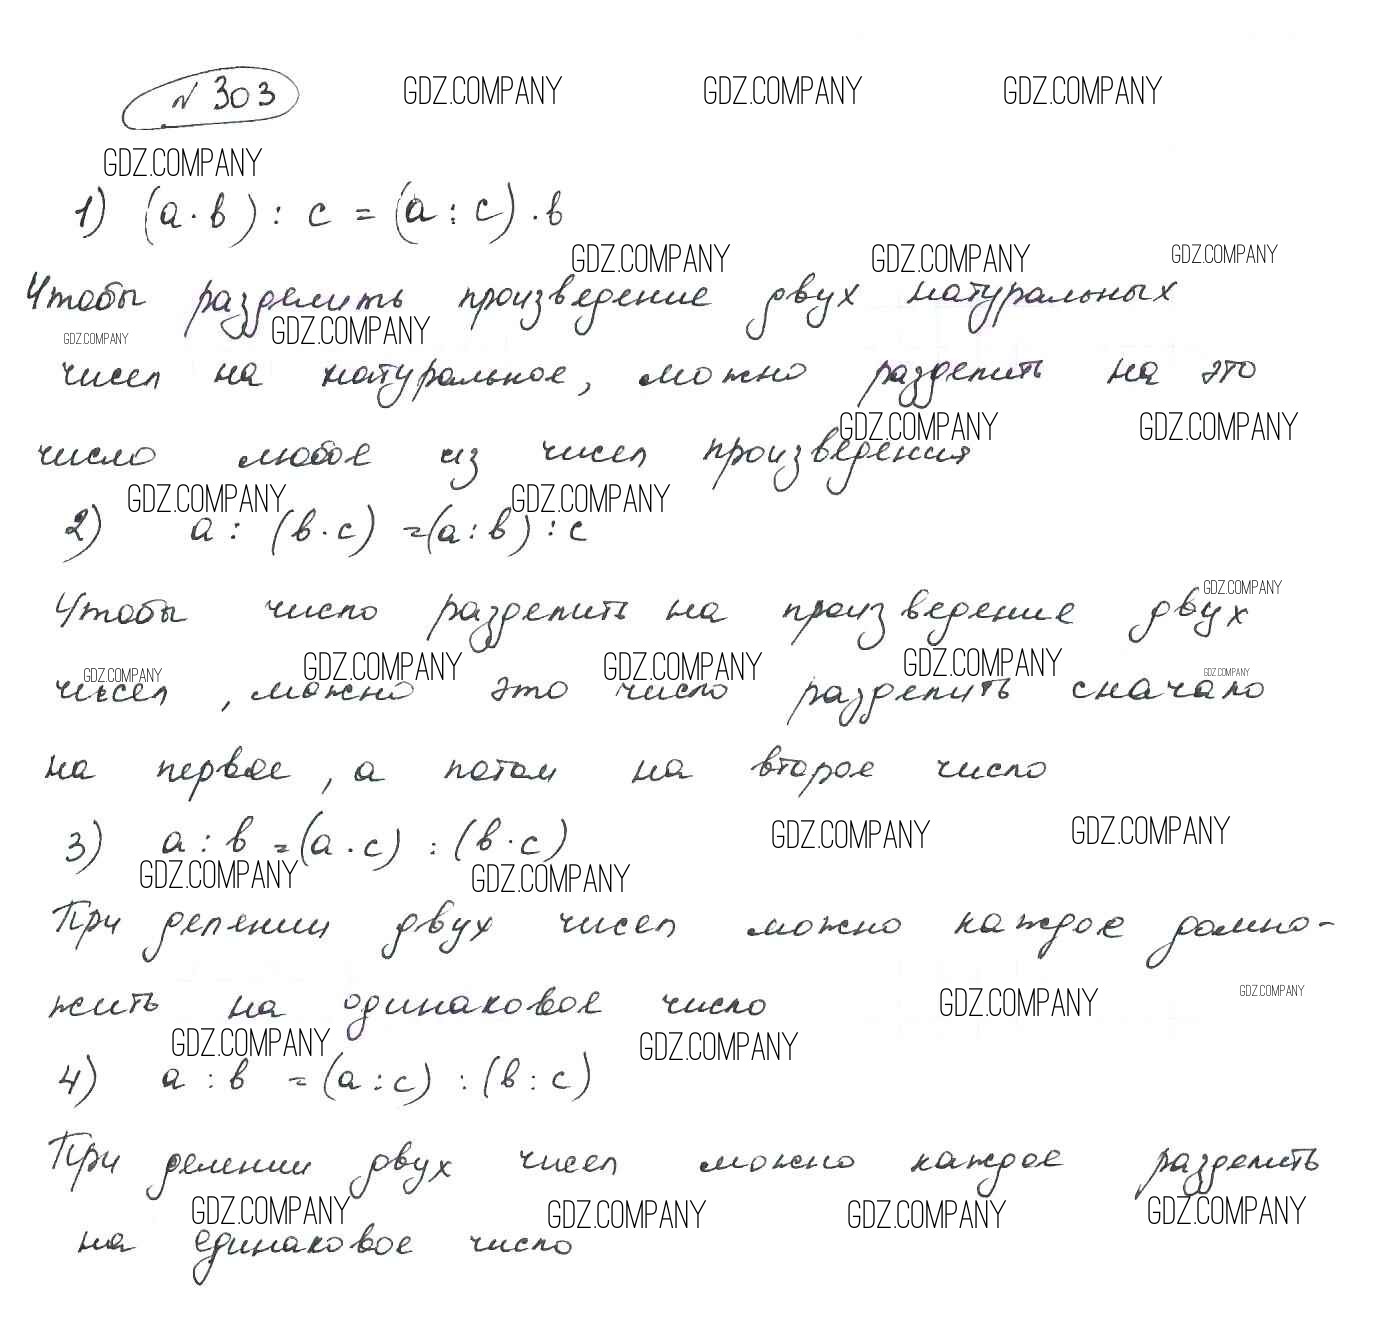 № 303
GDZ.COMPANY GDZ.COMPANY GDZ.COMPANY
GDZ.COMPANY
1) (a·b) : c = (a : c)·b
GDZ.COMPANY GDZ.COMPANY GDZ.COMPANY
Чтобы разделить произведение двух натуральных
GDZ.COMPANY GDZ.COMPANY
чисел на натуральное, можно разделить на это
GDZ.COMPANY GDZ.COMPANY
число любое из чисел произведения
GDZ.COMPANY GDZ.COMPANY
2) a : (b·c) = (a : b) : c
GDZ.COMPANY
Чтобы число разделить на произведение двух
GDZ.COMPANY GDZ.COMPANY GDZ.COMPANY GDZ.COMPANY GDZ.COMPANY
чисел, можно это число разделить сначало
на первое, а потом на второе число
GDZ.COMPANY GDZ.COMPANY
3) a : b = (a·c) : (b·c)
GDZ.COMPANY GDZ.COMPANY
При делении двух чисел можно каждое домно-
жить на одинаковое число
GDZ.COMPANY GDZ.COMPANY
GDZ.COMPANY GDZ.COMPANY
4) a : b = (a : c) : (b : c)
При делении двух чисел можно каждое разделить
GDZ.COMPANY GDZ.COMPANY GDZ.COMPANY GDZ.COMPANY
на единаковое число